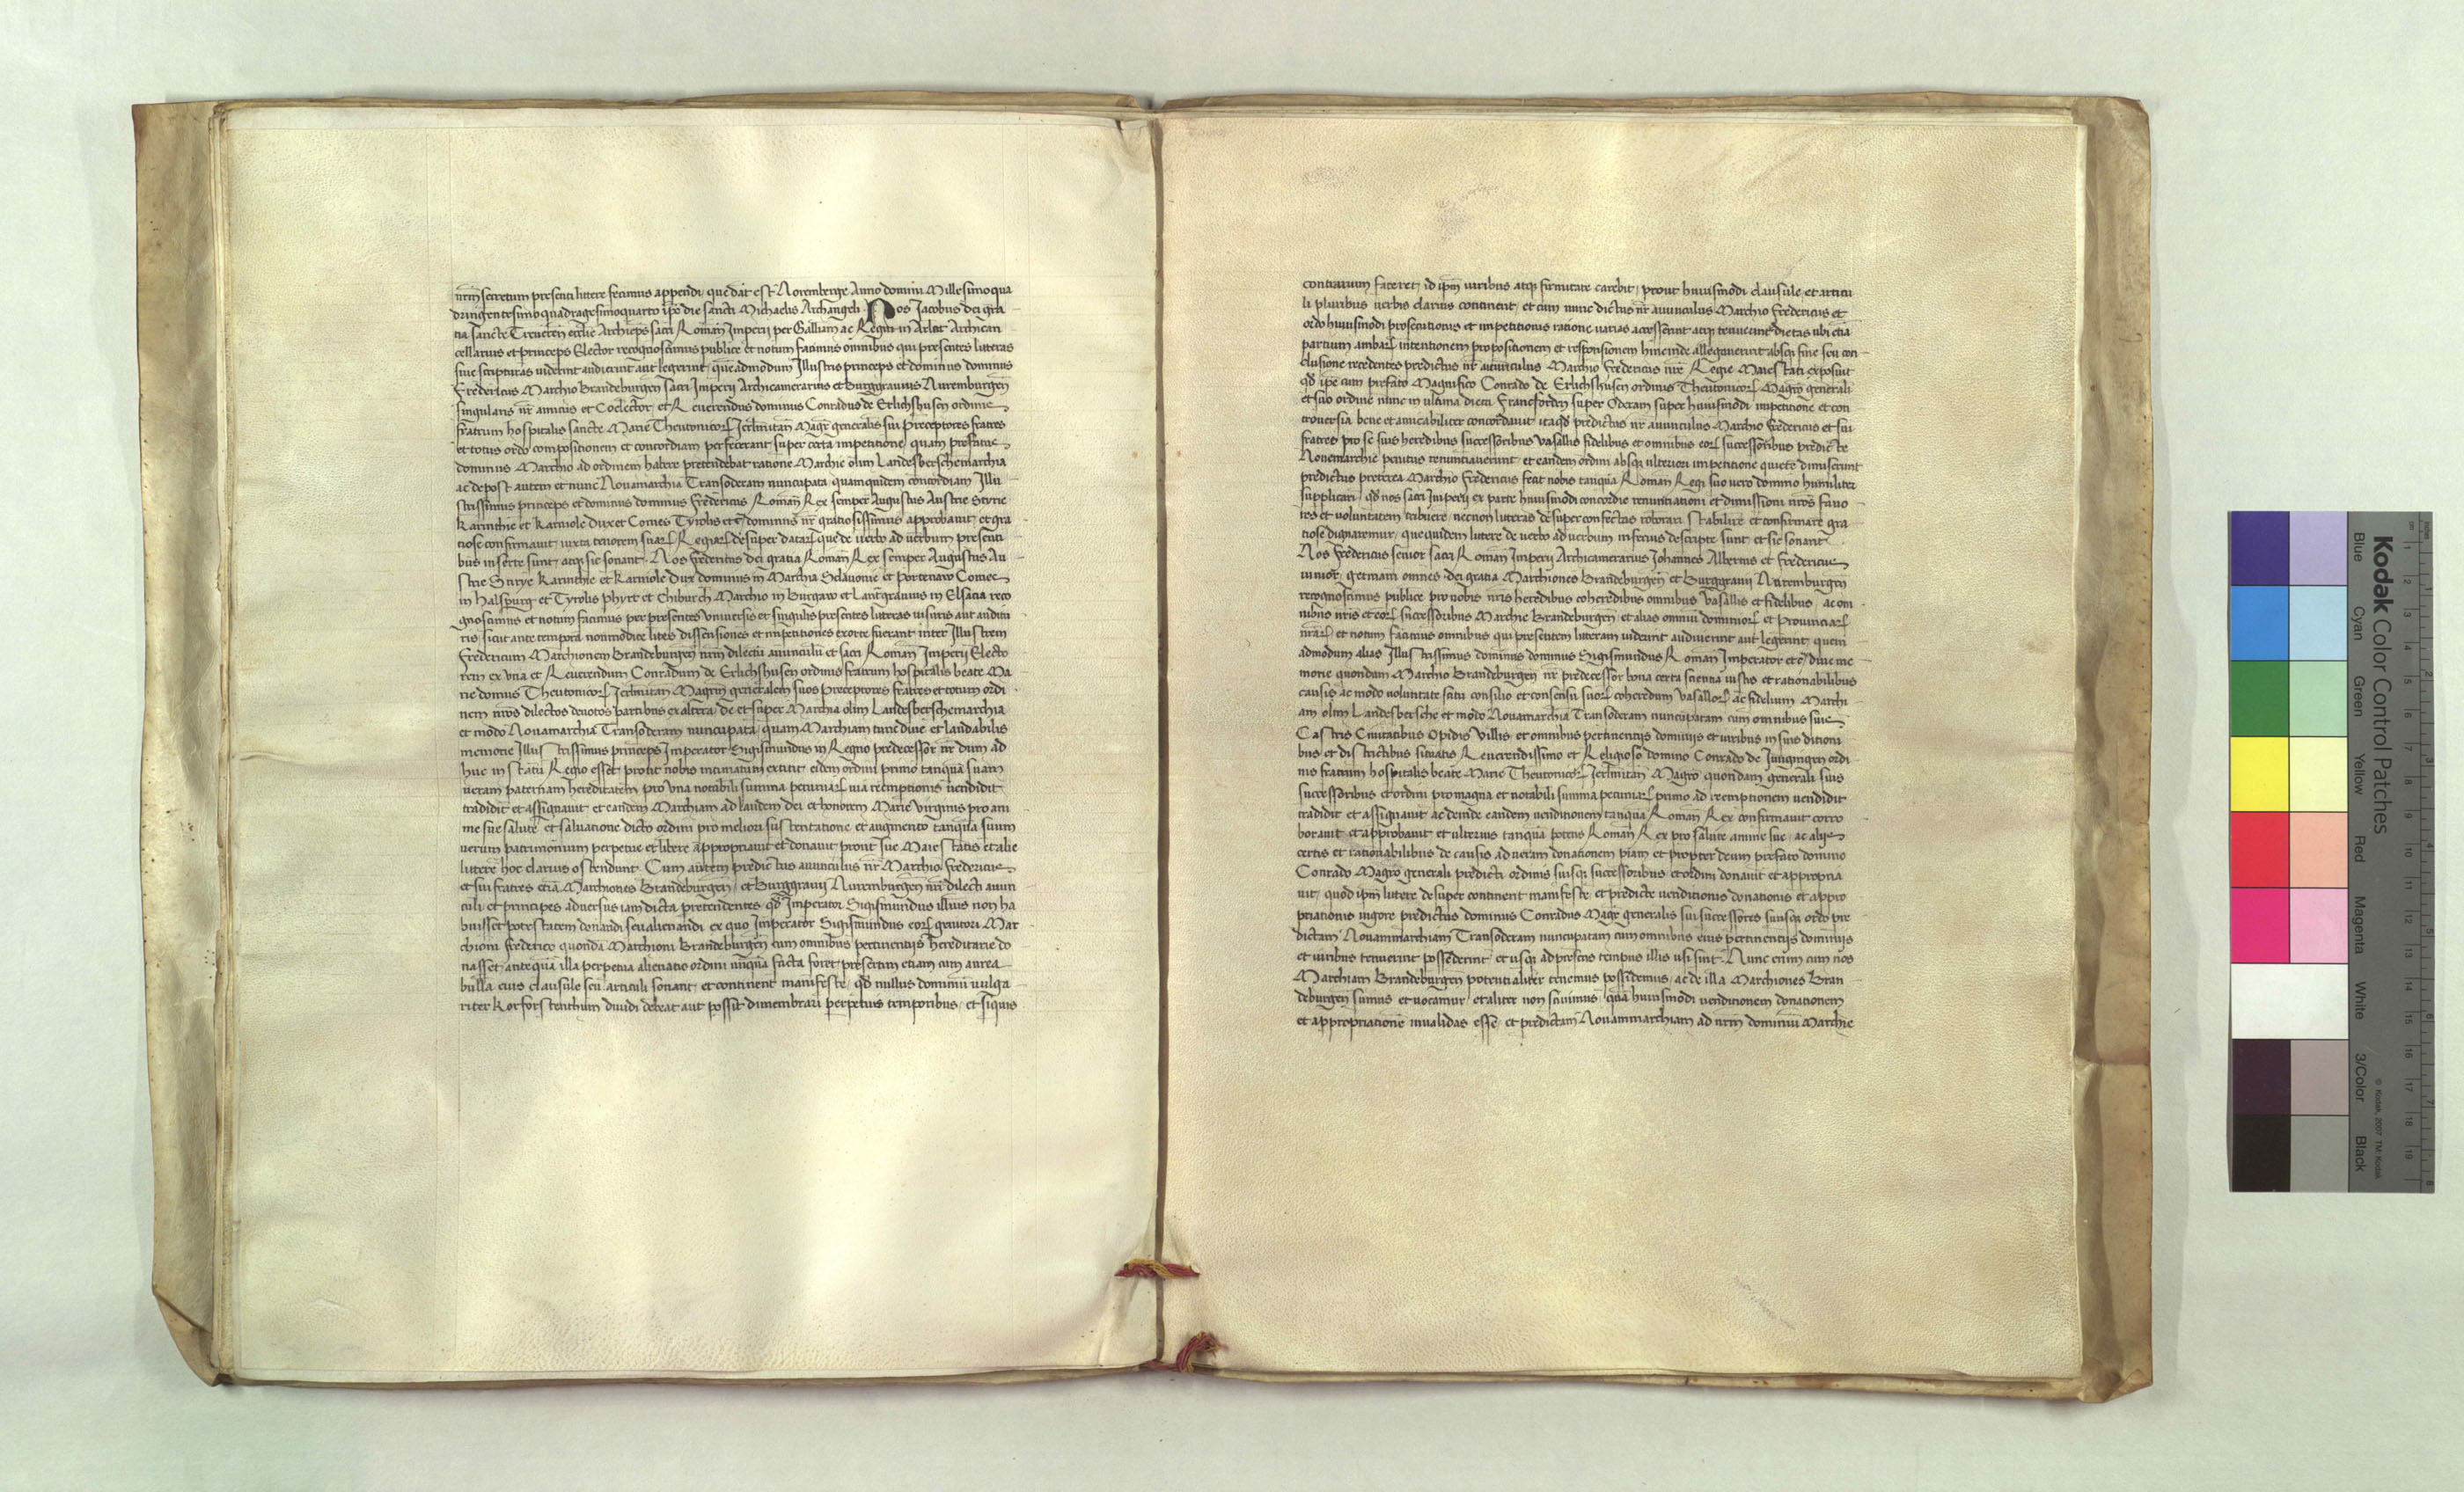 nrm̄ secretum presenti littere fecimus appendi que dat̄ est Noremberge Anno domini Millesimoqua
dringentesimoquadragesimoquarto ipō die sancti Michaelis Archangeli Nos Jacobus dei gra
tia sancte Treueren̄ ecclie Archiep̄s sacri Roman̄ Imperij per Galliam ac Regnū in Arlat̄ Archican
cellarius et princeps Elector recognoscimus publice et notum facimus omnibus qui presentes litteras
siue scripturas viderint audierint aut legerint / quēadmodum Illustris princeps et dominus dominus
Fredericus Marchio Brandeburgen̄ sacri Imperij Archicamerarius et Burggrauius Nuremburgen̄
singularis nr̄ amicus et Coelector / et Reuerendus dominus Conradus de Erlichshusen ordinis
fratrum hospitalis sancte Marie Theutonicor̄ Jerl̄mitan̄ Magr̄ generalis sui Preceptores fratres
et totus ordo compositionem et concordiam perfecerant super certa impetitione quam prefatus
dominus Marchio ad ordinem habere pretendebat ratione Marchie olim Landesberschemarchia
ac depost autem et nunc Nouamarchia Transoderam nuncupata / quamquidem concordiam Illu
strissimus princeps et dominus dominus Fredericus Roman̄ Rex semper Augustus Austrie Styrie
Karinthie et Karniole Dux et Comes Tyrolis etc̄ dominus nr̄ gratiosissimus approbauit / et gra
tiose confirmauit iuxta tenorem suar̄ Regiar̄ desuper datar̄ que de verbo ad verbum presenti
bus inserte sunt / atq̄ sic sonant · Nos Fredericus dei gratia Roman̄ Rex semper Augustus Au
strie Stirye Karinthie et Karniole Dux dominus in Marchia Sclauonie et Portenaw Comes
in Halspurg et Tyrolis Phyrt et Chiburch Marchio in Burgaw et Lantgrauius in Elsacia reco
gnoscimus et notum facimus per presentes Vniuersis et singulis presentes litteras visuris aut auditu
ris / sicut ante tempora nonmodice lites dissensiones et impetitiones exorte fuerant inter Illustrem
Fredericum Marchionem Brandeburgen̄ nrm̄ dilectū auunculū et sacri Roman̄ Imperij Electo
rem ex vna et Reuerendum Conradum de Erlichshusen ordinis fratrum hospitalis beate Ma
rie domus Theutonicor̄ Jerl̄mitan̄ Magrm̄ generalem suos Preceptores fratres et totum ordi
nem nros̄ dilectos deuotos partibus ex altera / de et super Marchia olim Landesberschemarchia
et modo Nouamarchia Transoderam nuncupata / quam Marchiam tunc diue et laudabilis
memorie Illustrissimus princeps Imperator Sigismundus in Regno predecessor nr̄ dum ad
huc in statu Regio esset / prout nobis intimatum extitit eidem ordini primo tanquā suam
veram paternam hereditatem pro vna notabili summa pecuniar̄ via reemptionis vendidit
tradidit et assignauit et eandem Marchiam ad laudem dei et honorem Marie virginis pro ani
me sue salute et saluatione dicto ordini pro meliori sustentatione et augmento tanquā suum
verum patrimonium perpetue et libere appropriauit et donauit prout sue Maiestatis et alie
littere hoc clarius ostendunt. Cum autem predictus auunculus nr̄ Marchio Fredericus
et sui fratres etiā Marchiones Brandeburgen̄ / et Burggrauij Nuremburgen̄ nri dilecti auun
culi et principes aduersus iam dicta pretendentes / qd̄ Imperator Sigismundus illius non ha
buisset potestatem donandi seu alienandi ex quo Imperator Sigismundus eor̄ genitori Mar
chioni Frederico quondā Marchioni Brandeburgen̄ cum omnibus pertinentijs hereditarie do
nasset / antequā illa perpetua alienatio ordini vnquā facta foret / presertim etiam cum aurea
bulla eius clausule seu articuli sonant / et continent manifeste / qd̄ nullus dominiū vulga
riter Korforstenthum diuidi debeat aut possit dimembrari perpetuis temporibus / et siquis
contrarium faceret / id ipm̄ viribus atq̄ firmitate carebit / prout huiusmodi clausule et articu
li pluribus verbis clarius continent / et cum nunc dictus nr̄ auunculus Marchio Fredericus et
ordo huiusmodi prosecutionis et impetitionis ratione varias accesserint atq̄ tenuerint dietas vbi etiā
partium ambar̄ intentionem propositionem et responsionem hincinde allegauerūt absq̄ fine seu con
clusione recedentes predictus nr̄ auunculus Marchio Fredericus nr̄e Regie Maiestati exposuit
qd̄ ipē cum prefato Magnifico Conrado de Erlichshusen ordinis Theutonicor̄ Magrō generali
et suo ordine nunc in vltima dieta Francforden̄ super Oderam super huiusmodi impetitione et con
trouersia bene et amicabiliter concordauit itaqd̄ predictus nr̄ auunculus Marchio Fredericus et sui
fratres pro se suis heredibus successoribus Vasallis fidelibus et omnibus eor̄ successoribus predicte
Nouemarchie penitus renuntiauerunt / et eandem ordini absq̄ vlteriori impetitione quiete dimiserunt
predictus preterea Marchio Fredericus fecit nobis tanquā Roman̄ Regi suo vero domino humiliter
supplicari / qd̄ nos sacri Imperij ex parte huiusmodi concordie renuntiationi et dimissioni nros̄ fauo
res et voluntatem tribuere / necnon litteras desuper confectas roborari stabilire et confirmare gra
tiose dignaremur / quequidem littere de verbo ad verbum inferius descripte sunt / et sic sonant
Nos Fredericus senior sacri Roman̄ Imperij Archicamerarius Johannes Albertus et Fredericus
iunior / germani omnes · dei gratia Marchiones Brandeburgen̄ et Burggrauij Nuremburgen̄
recognoscimus publice pro nobis nris̄ heredibus coheredibus omnibus Vasallis et fidelibus / ac om
nibus nris̄ et eor̄ successoribus Marchie Brandeburgen̄ / et alias omniū dominior̄ et Prouinciar̄
nrar̄ / et notum facimus omnibus qui presentem litteram viderint audiuerint aut legerint / quem
admodum alias Illustrissimus dominus dominus Sigismundus Roman̄ Imperator etc̄ / diue me
morie quondam Marchio Brandeburgen̄ nr̄ predecessor bona certa scientia iustis et rationabilibus
causis ac modo voluntate scitu consilio et consensu suor̄ coheredum vasallor̄ ac fidelium Marchi
am olim Landesbersche et modo Nouamarchia Transoderam nuncupatam cum omnibus suis
Castris Ciuitatibus Opidis Villis / et omnibus pertinentijs dominijs et viribus in suis ditioni
bus et districtibus situatis Reuerendissimo et Religioso domino Conrado de Jungingen ordi
nis fratrum hospitalis beate Marie Theutonicor̄ Jerl̄mitan̄ Magrō quondam generali suis
successoribus et ordini pro magna et notabili summa pecuniar̄ primo ad reemptionem vendidit
tradidit et assignauit ac deinde eandem venditionem tanquā Roman̄ Rex confirmauit corro
borauit et approbauit / et vlterius tanquā potens Roman̄ Rex pro salute anime sue / ac alijs
certis et rationabilibus de causis ad veram donationem piam et propter deum prefato domino
Conrado Magrō generali predicti ordinis suisq̄ successoribus et ordini donauit et appropria
uit / quod ipm̄ littere desuper continent manifeste / et predicte venditionis donationis et appro
priationis vigore predictus dominus Conradus Magr̄ generalis sui successores suusq̄ ordo pre
dictam Nouammarchiam Transoderam nuncupatam cum omnibus eius pertinentijs dominijs
et viribus tenuerint possederint / et vsq̄ ad presens tempus illis vsi sint. Nunc enim cum nos
Marchiam Brandeburgen̄ potentialiter tenemus possidemus / ac de illa Marchiones Bran
deburgen̄ sumus et vocamur / et aliter non sciuimus / quā huiusmodi venditionem donationem
et appropriationē inualidas esse / et predictam Nouammarchiam ad nrm̄ dominiū Marchie